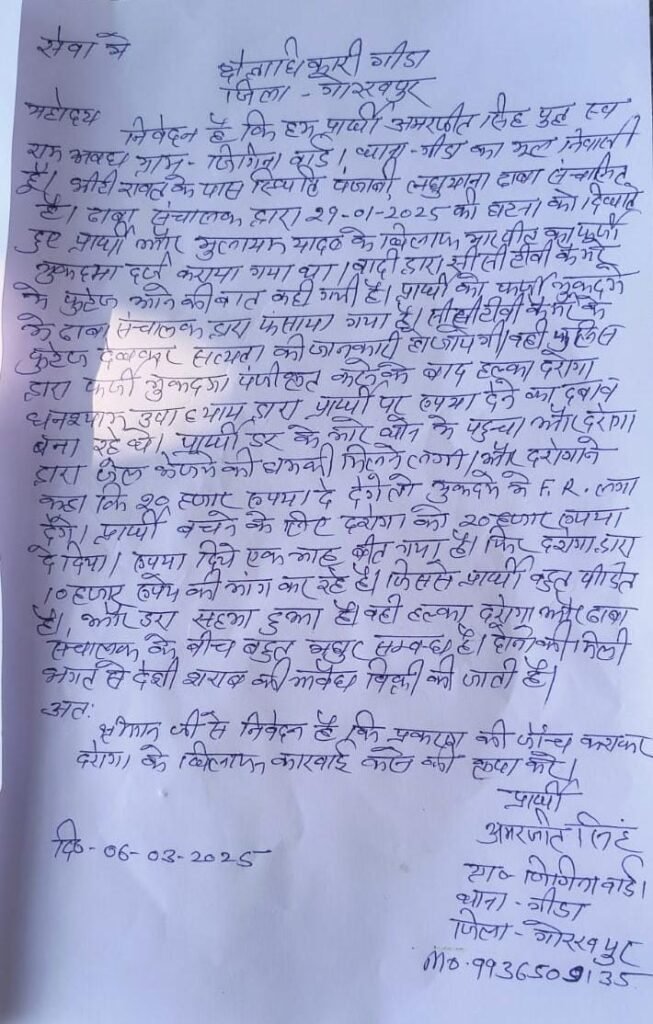 सेवा में
क्षेत्राधिकारी गीडा
जिला - गोरखपुर
महोदय
निवेदन है कि हम प्रार्थी अमरजीत सिंह पुत्र स्व
राम अवध ग्राम - जिगिना वार्ड। थाना - गीडा का मूल निवासी
है। भीटी रावत के पास स्थिति पंजाबी लुधयाना ढाबा संचालित
है। ढाबा संचालक द्वारा 29-01-2025 की घटना को दिखाते
हुए प्रार्थी और मुलायम यादव के खिलाफ मारपीट का फर्जी
मुकदमा दर्ज कराया गया था। वादी द्वारा सीसीटीवी कैमरे
के फुटेज की बात कही गयी है। प्रार्थी को फर्जी मुकदमे
में ढाबा संचालक द्वारा फंसाया गया है। सीसीटीवी कैमरे के
फुटेज देखकर सत्यता की जानकारी हो जायेगी। वही पुलिस
द्वारा फर्जी मुकदमा पंजीकृत करने के बाद हल्का दरोगा
घनश्याम उपाध्याय द्वारा प्रार्थी पर रुपया देने का दबाव
बना रहे थे। प्रार्थी डर के मारे थाने पे पहुंचा और दरोगा
द्वारा जेल भेजने की धमकी मिलने लगी। और दरोगा ने
कहा कि 20 हजार रुपया दे देगे तो मुकदमे में F.R. लगा
देंगे। प्रार्थी बचने के लिए दरोगा को 20 हजार रुपया
दे दिया। रुपया दिये एक माह बीत गया है। फिर दरोगा द्वारा
10 हजार रुपये की मांग कर रहे है। जिससे प्रार्थी बहुत पीडित
है। और डरा सहमा हुआ है। वही हल्का दरोगा और ढाबा
संचालक के बीच बहुत मधुर सम्बन्ध है। दोनो की मिली
भगत से देशी शराब की अवैध बिक्री की जाती है।
अतः
श्रीमान जी से निवेदन है कि प्रकरण की जाँच कराकर
दरोगा के खिलाफ कारवाई करने की कृपा करे।
प्रार्थी
अमरजीत सिंह
ग्रा० जिगिना वार्ड।
थाना - गीडा
जिला - गोरखपुर
Mo. 9936509135
दि० - 06-03-2025